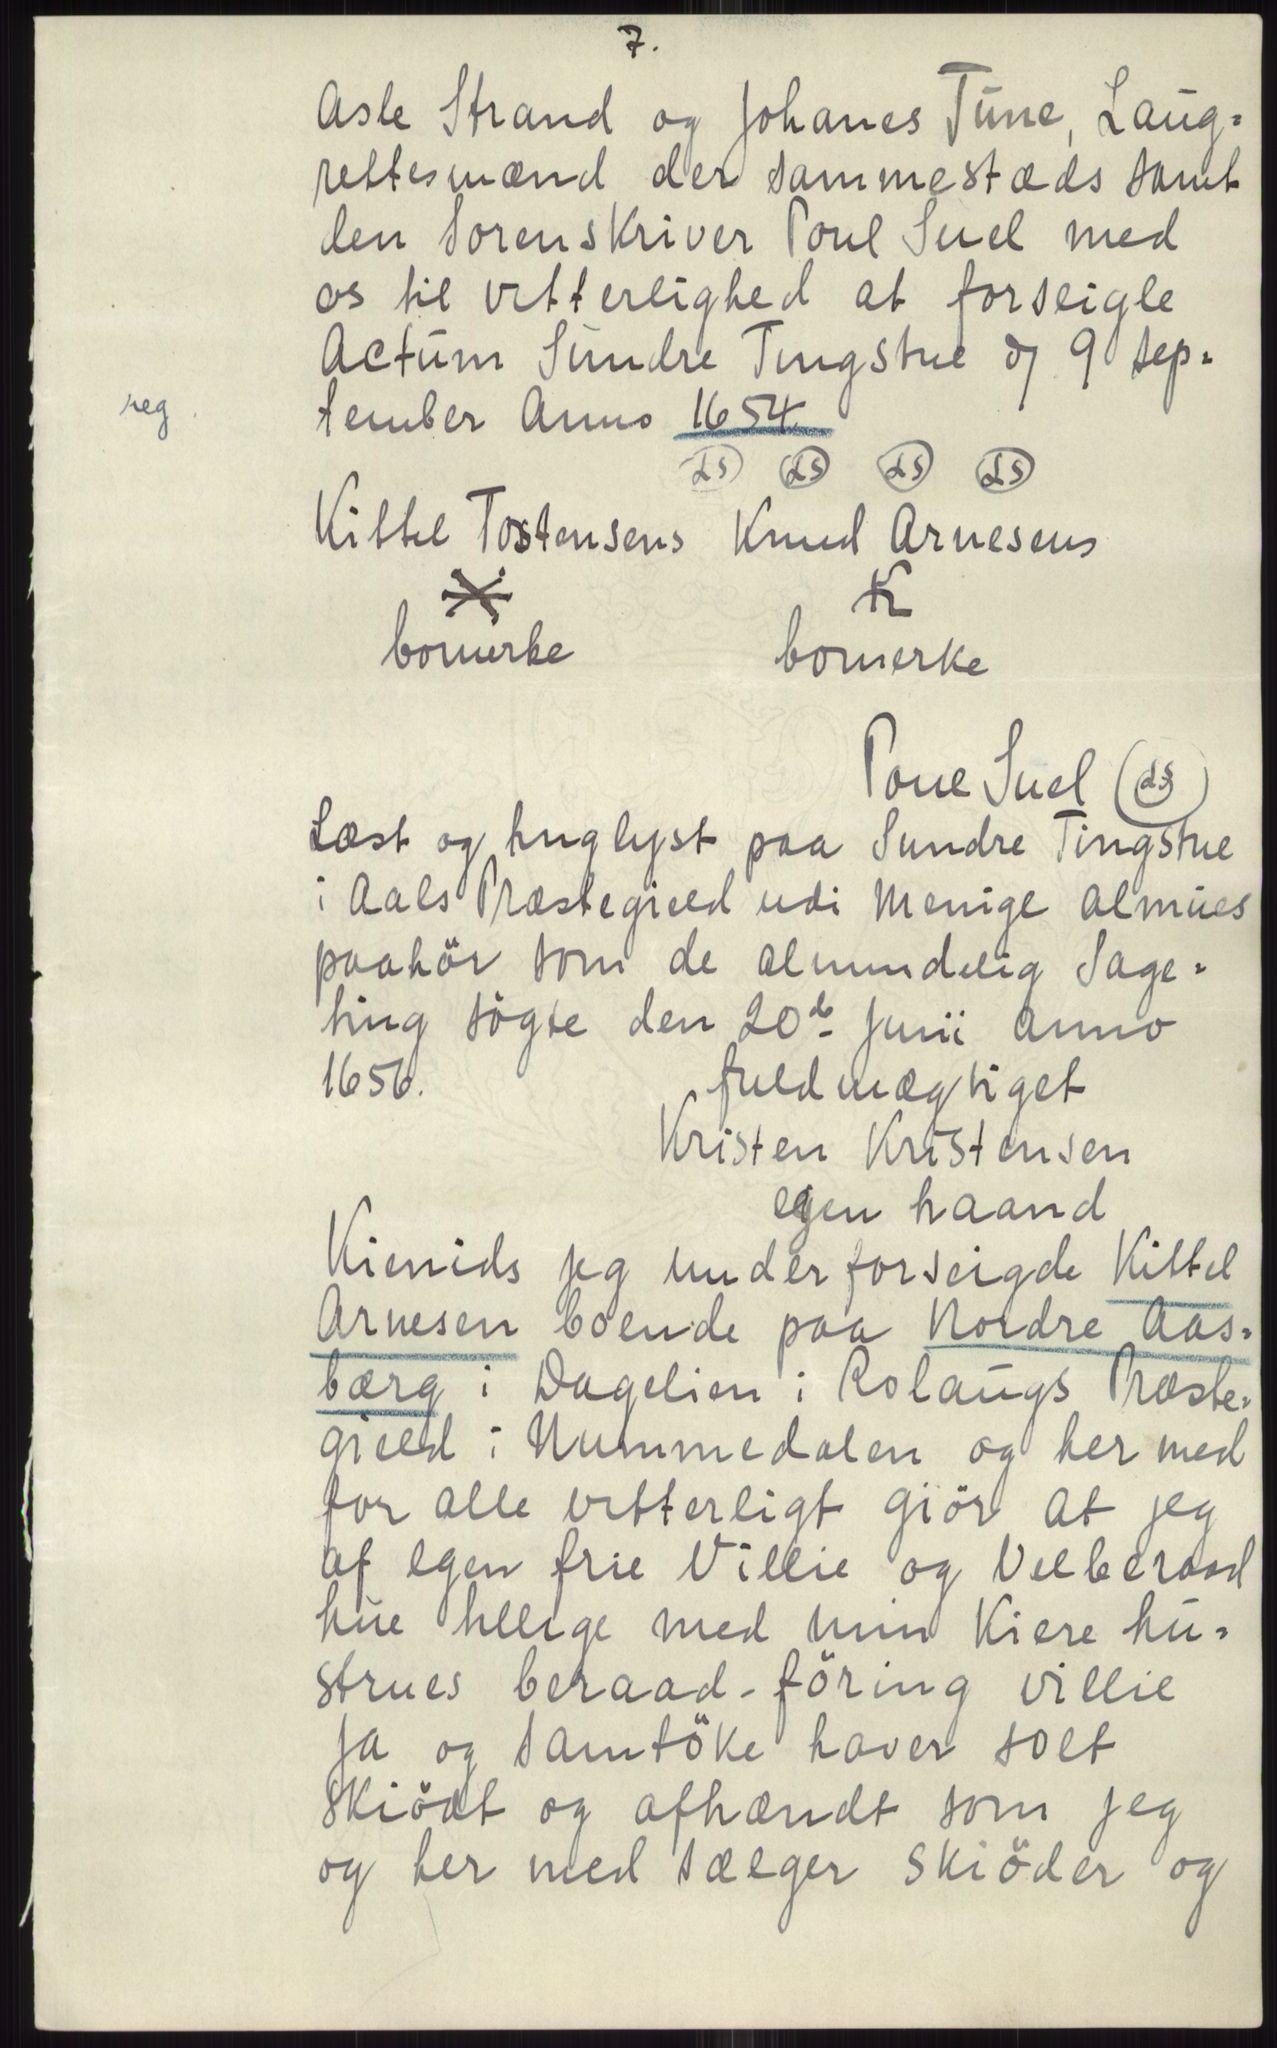 7.
Asle Strand og Johanes Tune, Laug=
rettesmænd der sammestæds samt
den Sorenskriver Poul Suel med
os til vitterlighed at forseigle
Actum Sundre Tingstue d 9 sep=
reg.
tember Anno 1654.
LS LS LS LS
Kittel Tostensens Knud Arnesens
K
bomerke bomerke
Poul Suel LS
Læst og tinglyst paa Sundre Tingstue
i Aals Præstegield udi Menige almues
paahör som de almindelig Sage=
ting sögte den 20de Junii anno
1656. fuldmægtiget
Kristen Kristensen
egen haand
Kienids jeg underforseigde Kittel
Arnesen boende paa Nordre Aas=
bærg i Dagelien i Rolaugs Præste=
gield i Nummedalen og her med
for alle vitterligt giör at jeg
af egen frie Villie og Velberaad
hue sleige med min Kiere hu=
strues beraad-föring villie
ja og samtöke haver solt
Skiödt og afhændt som jeg
og her med sælger Skiöder og